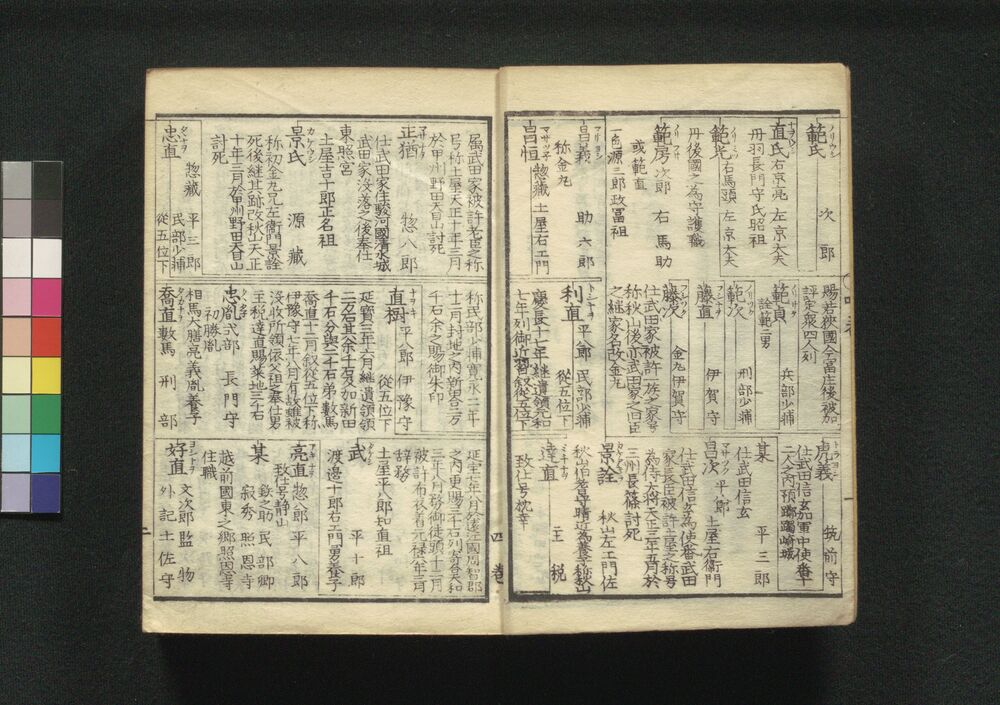 範氏 次郎
直氏 右京亮 左京大夫
丹羽長門守氏昭祖
範光 右馬頭 左京大夫
丹後國之為守護職
範房 次郎 右馬助
或範直
一色源三郎政冨祖
昌義 助六郎
称金丸
昌恒 惣藏 土屋右エ門
賜若狹國今冨庄後被加
評定衆四人列
範貞 兵部少補
詮範二男
範次 刑部少補
藤直 伊賀守
藤次 金丸伊賀守
仕武田家被許一族之家号
称秋山後亦武田家之旧臣
之継家名改金丸
利直 平八郎 民部少補
從五位下
慶長十七年継遺領元和
七年列御近習叙從五位下
虎義 筑前守
仕武田信玄加軍中使番十
二人之内預躑躅崎城
某 平三郎
仕武田信玄
昌次 平八郎 土屋右衞門
仕武田信玄為使番武田
家老臣被許土屋称号
為侍大将天正三年五月於
三州長篠討死
景詮 秋山左エ門佐
秋山伯耆守晴近為養子称秋山
達直 主税
致仕号枕幸
属武田家被許老臣之称
号称土屋天正十年三月
於甲州野田天目山討死
正猶 惣八郎
仕武田家住駿河國清水城
武田家没落之後奉仕
東照宮
土屋吉十郎正名祖
景氏 源藏
称初金丸兄左衞門景詮
死後継其跡改秋山天正
十年三月於甲州野田天目山
討死
忠直 惣藏 平三郎
民部少補
從五位下
称民部少補寛永二年
十二月封地之内新畧二万
千石余之賜御朱印
直樹 平八郎 伊豫守
從五位下
延寳三年六月継遺領領
二万石其余千石及加新田
千石分與三千石弟數馬
喬直十二月叙從五位下称
伊豫守七年八月有故雖被
没收所領依父祖之奉仕男
主税達直賜菜地三千石
忠胤 式部 長門守
初勝胤
相馬大膳亮義胤養子
喬直 數馬 刑部
延宝七年八月於遠江國周智郡
之内更賜三千石列寄合天和
三年八月務御徒頭十二月
被許布衣着元禄七年三月
辞務
土屋平八郎知直祖
武 平十郎
渡邊十郎右エ門男養子
亮直 惣八郎 平八郎
致仕号静山
某 鉄之助 民部卿
寂秀 照恩寺
越前國東之郷照恩寺
住職
好直 文次郎 監物
外記 土佐守
四巻